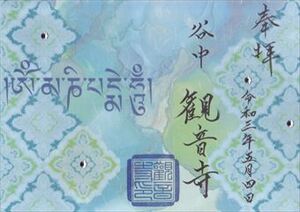 奉拝
令和三年五月四日
谷中
観音寺
།ༀམཎིཔདྨེཧཱུྃ།